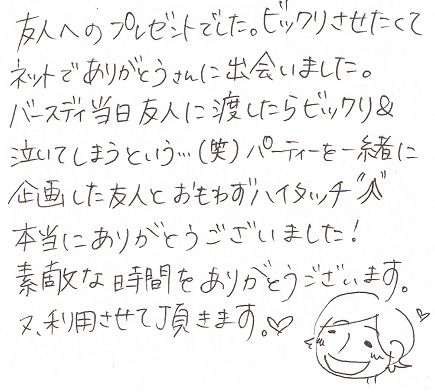 友人へのプレゼントでした。ビックリさせたくて
ネットでありがとうさんに出会いました。
バースディ当日友人に渡したらビックリ&
泣いてしまうという…(笑)パーティーを一緒に
企画した友人とおもわずハイタッチ
本当にありがとうございました!
素敵な時間をありがとうございます。
又、利用させて頂きます。♡